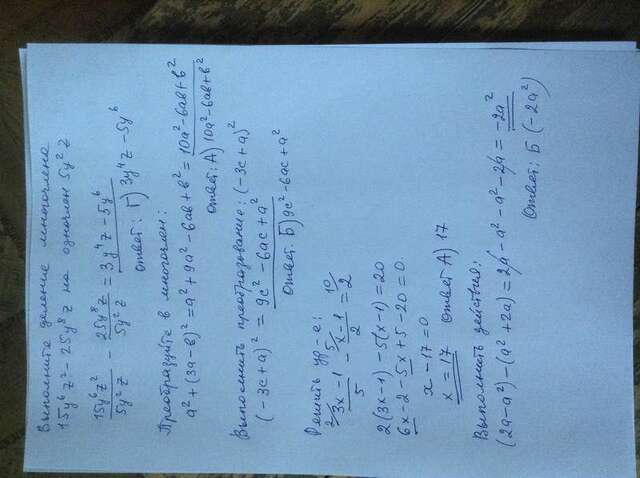 Выполните деление многочлена
15y⁶z² - 25y⁸z на одночлен 5y²z
15y⁶z²/5y²z - 25y⁸z/5y²z = 3y⁴z - 5y⁶
ответ: Г) 3y⁴z - 5y⁶
Преобразуйте в многочлен:
a² + (3a - в)² = a² + 9a² - 6ав + в² = 10a² - 6ав + в²
Ответ: А) 10a² - 6ав + в²
Выполнить преобразование: (-3c + a)²
(-3c + a)² = 9c² - 6ac + a²
Ответ. Б) 9c² - 6ac + a²
Решить ур-е:
²⁄ 3x - 1/5 - ⁵⁄ x - 1/2 = ¹⁰⁄ 2
2(3x - 1) - 5(x - 1) = 20
6x - 2 - 5x + 5 - 20 = 0
x - 17 = 0
x = 17 Ответ А) 17
Выполнить действия:
(2a - a²) - (a² + 2a) = 2a - a² - a² - 2a = -2a²
Ответ: Б (-2a²)